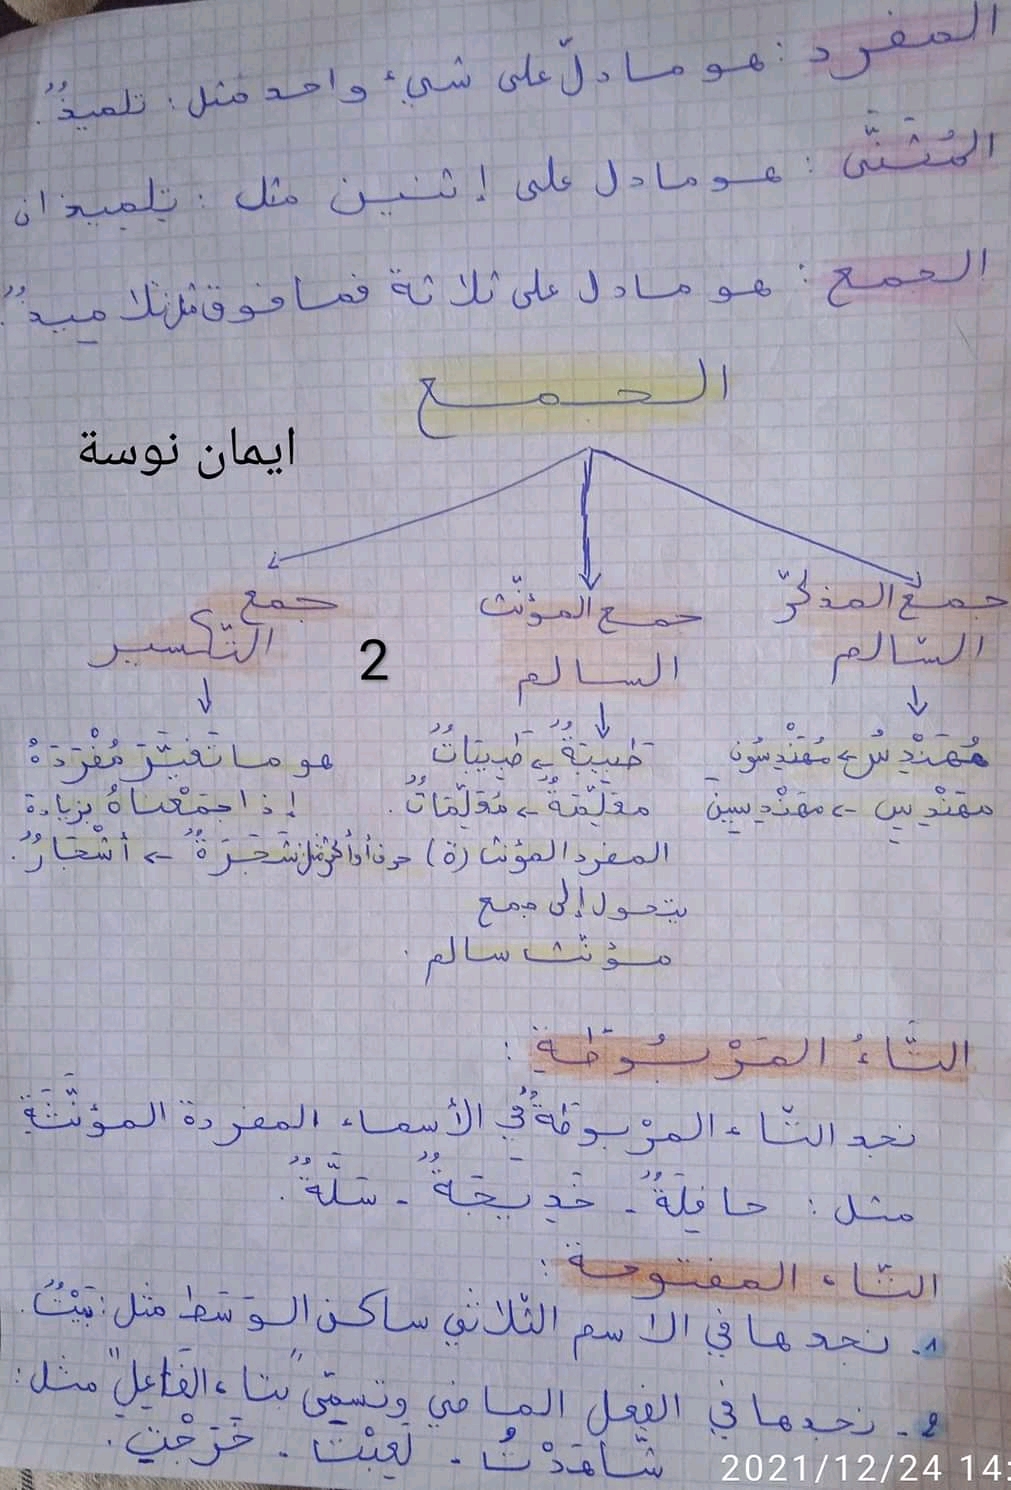 المفرد : هو ما دلّ على شيء واحد مثل : تلميذٌ.
المُثنَّى : هو ما دل على إثنين مثل : تلميذان
الجمع : هو ما دل على ثلاثة فما فوق مثل تلاميذٌ.
الجمع
ايمان نوسة
جمع المذكّر السّالم
جمع المؤنّث السالم
جمع التّكسير
2
مُهَنْدِسٌ ← مُهَنْدِسُونَ
مهَنْدِسٍ ← مهَنْدِسِينَ
طَبيبَةٌ ← طَبِيبَاتٌ
معَلِّمَةٌ ← مُعَلِّمَاتٌ.
المفرد المؤنث (ة)
يتحول إلى جمع
مؤنّث سالم.
هو ما تَغَيَّرَ مُفْرَدَهُ
إذا جمَعْناهُ بزيادة
حرف أو أكثر مثل شَجَرَةٌ ← أَشْجَارٌ.
التَّاءُ المَرْبُوطَةِ :
نجد التّاء المرْبوطَةٌ في الأسماء المفردة المؤنَّثَةِ
مثل : حافِلَةٌ - خَدِيجَةٌ - سَلَّةٌ.
التّاء المفتوحة :
1. نجدها في الاسم الثّلاثي ساكن الوَسَط مثل: بَيْتٌ.
2. نجدها في الفعل الماضي وتسمّى "بتاء الفَاعِلِ" مثل:
شَاهَدْتُ - لَعِبْتَ - خَرَجْتِ.
2021/12/24 14: